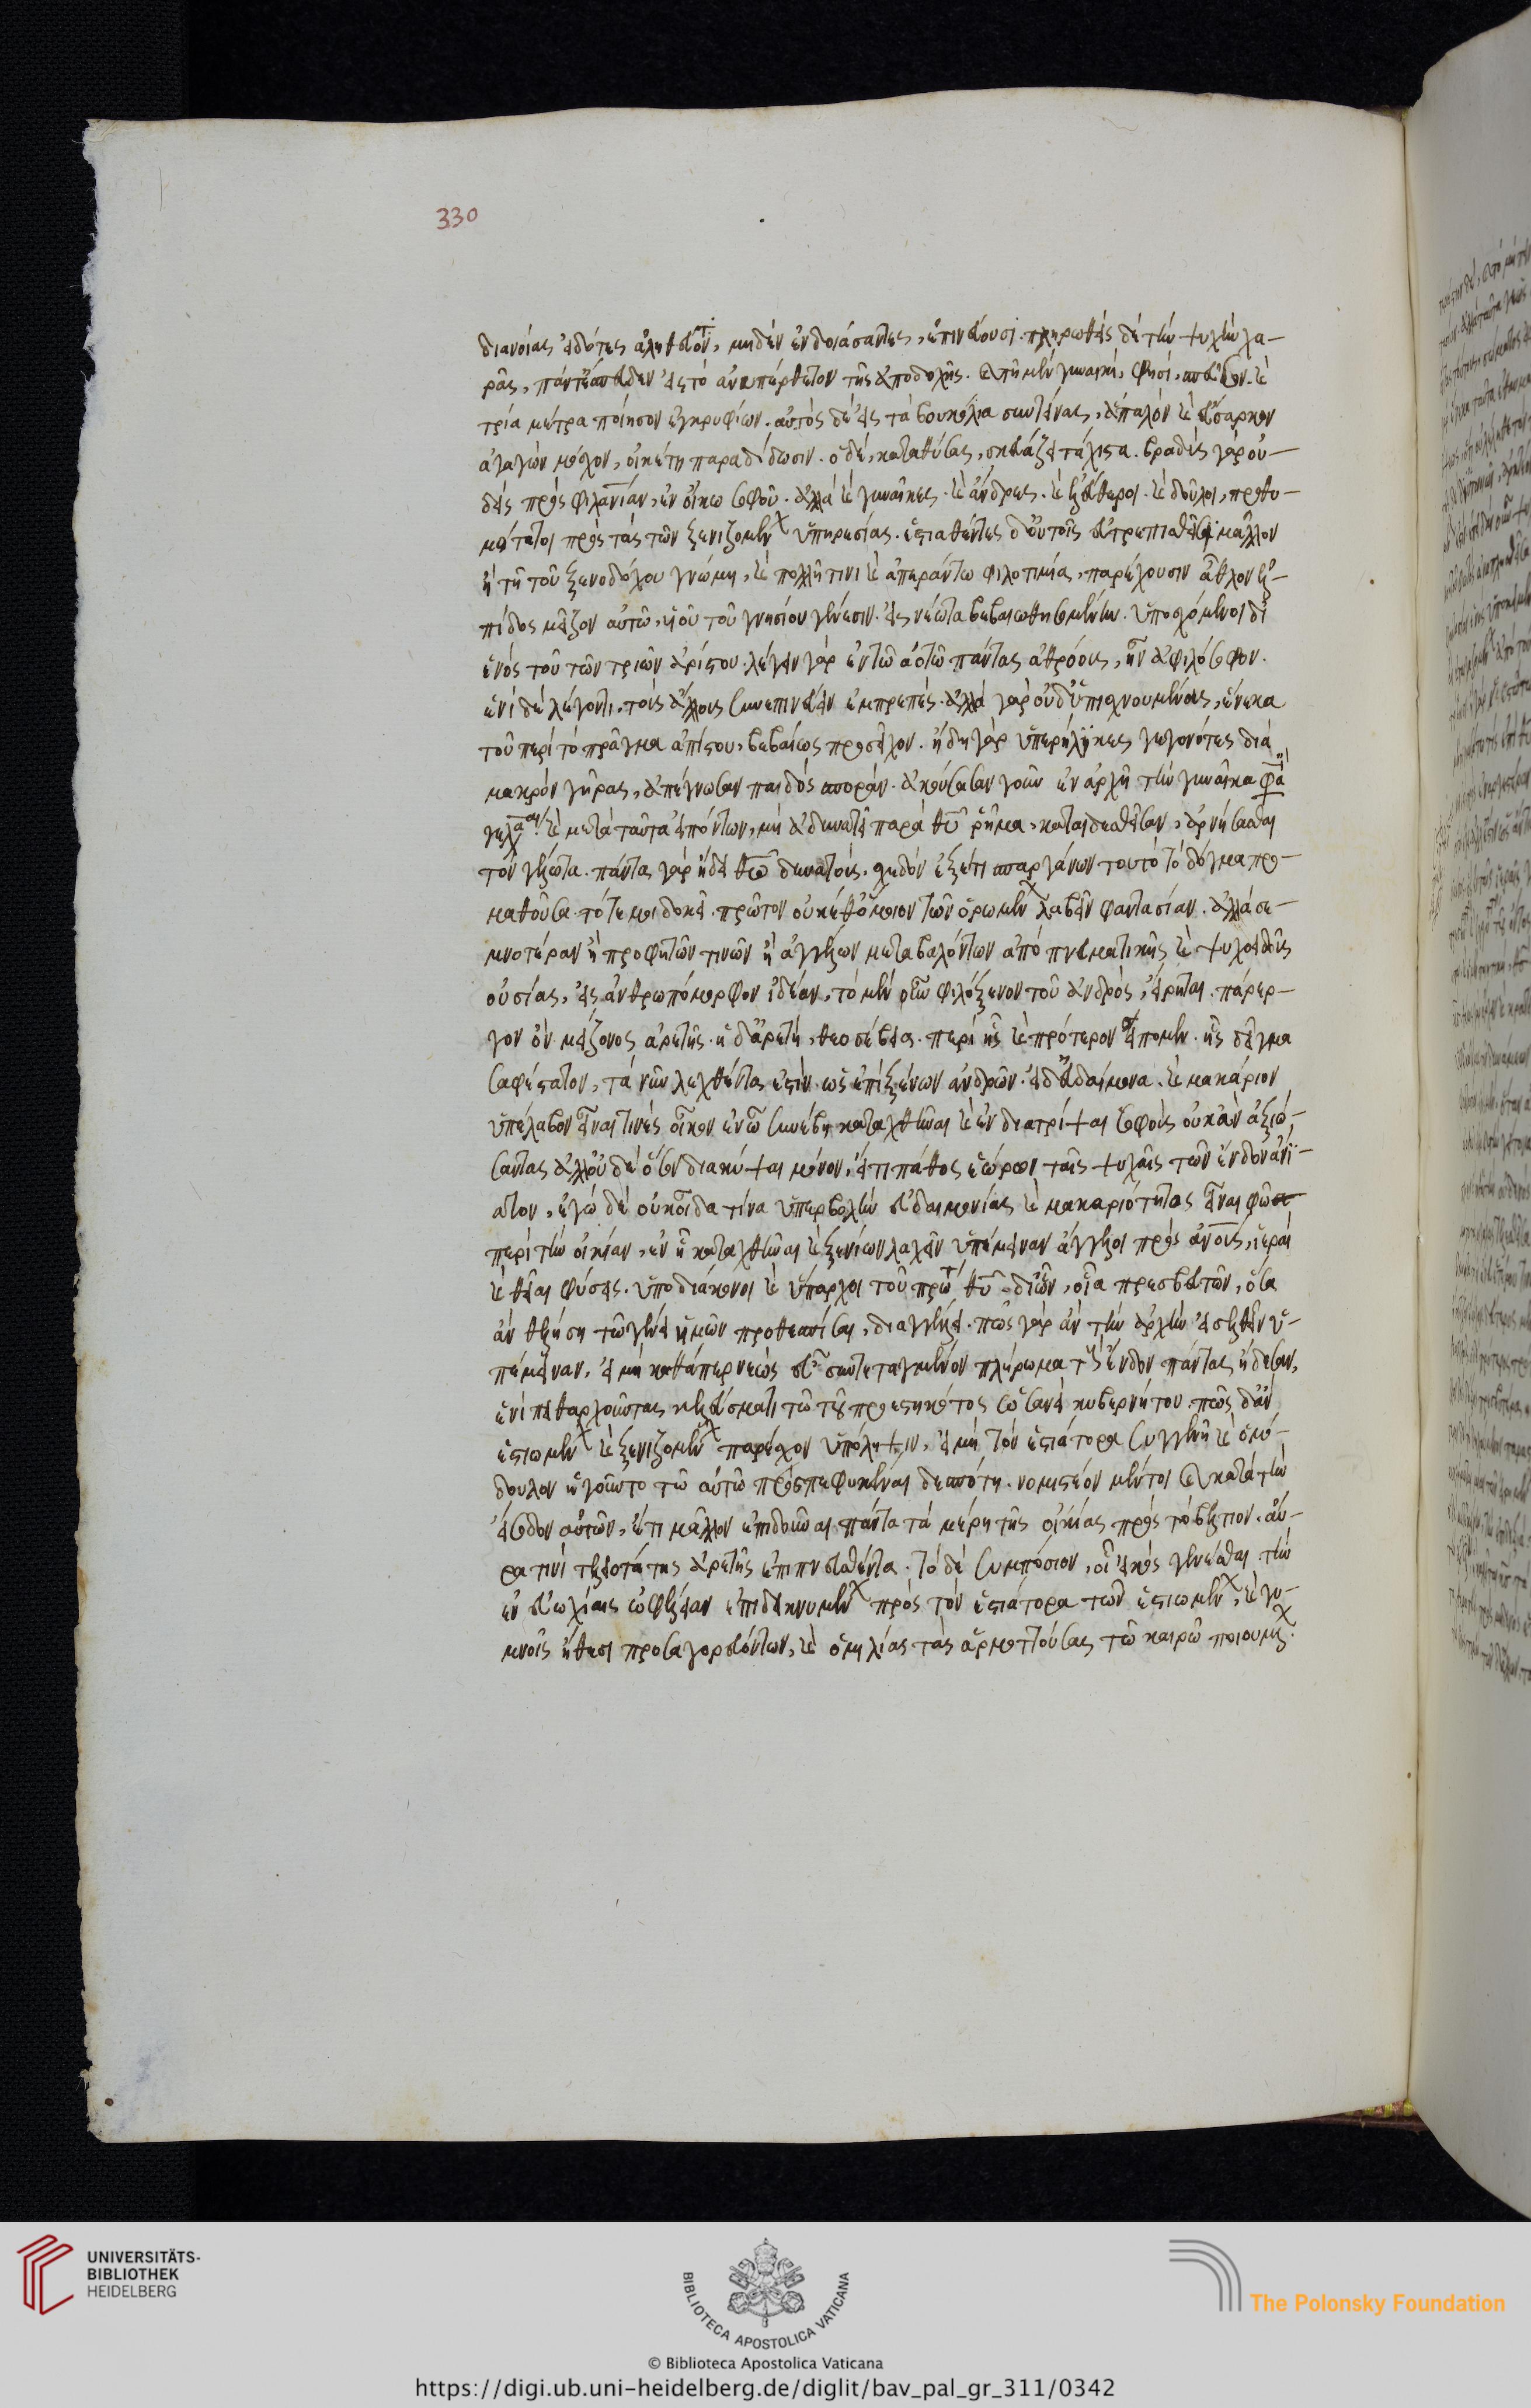 διανοίας εἰδότες ἀληθευόντ(ων), μηδὲν ἐνδοιάσαντες, ἐπινεύουσι. πληρωθεὶς δὲ τὴν ψυχὴν χα-
ρᾶς, πάντ' ἔσπευδεν εἰς τὸ ἀνυπέρθετον τῆς ὑποδοχῆς. καὶ τῇ μὲν γυναικί, φησί, σπεῦσον. καὶ
τρία μέτρα ποίησον ἐγκρυφίων. αὐτὸς δὲ εἰς τὰ βουκόλια συντείνας, ἁπαλὸν καὶ εὔσαρκον
ἀγαγὼν μόσχον, οἰκέτῃ παραδίδωσιν. ὁ δὲ, καταθύσας, σκευάζει τάχιστα. βραδὺς γὰρ οὐ-
δεὶς πρὸς φιλανίαν, ἐν οἴκω σοφοῦ. ἀλλὰ καὶ γυναῖκες. καὶ ἄνδρες. καὶ ἐλεύθεροι. καὶ δοῦλοι, προθυ-
μότατοι πρὸς τὰς τῶν ξενιζομένων ὑπηρεσίας. ἑστιαθέντες δ' οὐ τοῖς εὐτρεπισθεῖσι μᾶλλον
ἢ τῇ τοῦ ξενοδόχου γνώμη, καὶ πολλῇ τινι καὶ ἀπεράντω φιλοτιμία, παρέχουσιν ἆθλον ἐλ-
πίδος μεῖζον αὐτῶ, υἱοῦ τοῦ γνησίου γένεσιν. εἰς νέωτα βεβαιωθησομένην. ὑποσχόμενοι δι'
ἑνὸς τοῦ τῶν τριῶν ἀρίστου. λέγειν γὰρ ἐν τῶ αὐτῶ πάντας ἀθρόους, ἦν ἀφιλόσοφον.
ἑνὶ δὲ λέγοντι, τοὺς ἄλλους συνεπινεύειν ἐμπρεπές. ἀλλὰ γὰρ οὐδ' ὑπισχνουμένοις, ἕνεκα
τοῦ περὶ τὸ πρᾶγμα ἀπίστου, βεβαίως προσεῖχον. ἤδη γὰρ ὑπερήλικες γεγονότες διὰ
μακρὸν γῆρας, ἀπέγνωσαν παιδὸς σποράν. ἀκούσασαν γοῦν ἐν ἀρχῇ τὴν γυναῖκα φασὶ
γελάσαι. καὶ μετὰ ταῦτα εἰπόντων, μὴ ἀδυνατεῖ παρὰ θῦ ῥῆμα, καταιδεσθεῖσαν, ἀρνήσασθαι
τὸν γέλωτα. πάντα γὰρ ᾔδει θῶ δυνατούς. σχεδὸν ἐξέτι σπαργάνων τουτὶ τὸ δόγμα προ-
μαθοῦσα. τότε μοι δοκεῖ πρῶτον οὐκέθ' ὅμοιον τῶν ὁρωμένων λαβεῖν φαντασίαν. ἀλλὰ σε-
μνοτέραν ἢ προφητῶν τινων ἢ ἀγγέλων μεταβαλόντων ἀπὸ πνευματικῆς καὶ ψυχοειδοῦς
οὐσίας, εἰς ἀνθρωπόμορφον ἰδέαν, τὸ μὲν οὖν φιλόξενον τοῦ ἀνδρὸς, εἴρηται. πάρερ-
γον ὂν μείζονος ἀρετῆς. ἡ δ' ἀρετὴ, θεοσέβεια. περὶ ἧς καὶ πρότερον εἴπομεν. ἧς δεῖγμα
σαφέστατον, τὰ νῦν λεχθέντα ἐστὶν, ὡς ἐπὶ ξένων ἀνδρῶν. εἰ δ' εὐδαίμονα. καὶ μακάριον
ὑπέλαβον εἶναί τινες οἶκον ἐν ὧ συνέβη καταχθῆναι καὶ ἐνδιατρίψαι σοφοὺς οὐκ ἂν ἀξιώ-
σαντας ἀλλ' οὐδὲ ὅσον διακύψαι μόνον, εἴ τι πάθος ἑώρων ταῖς ψυχαῖς τῶν ἔνδον ἀνί-
ατον, ἐγὼ δὲ οὐκ οἶδα τίνα ὑπερβολὴν εὐδαιμονίας καὶ μακαριότητος εἶναι φῶ
περὶ τὴν οἰκίαν, ἐν ᾗ καταχθῆναι καὶ ξενίων λαχεῖν ὑπέμειναν ἄγγελοι πρὸς ἀνοις, ἱεραὶ
καὶ θεῖαι φύσεις. ὑποδιάκονοι καὶ ὕπαρχοι τοῦ πρώτ(ου) θῦ. δι' ὧν, οἷα πρεσβευτῶν, ὅσα
ἂν θελήση τῶ γένει ἡμῶν προθεσπίσαι, διαγγέλλει. πῶς γὰρ ἂν τὴν ἀρχὴν εἰσελθεῖν ὑ-
πέμειναν, εἰ μὴ καθάπερ νεὼς εὖ συντεταγμένον πλήρωμα τοὺς ἔνδον πάντας ᾔδεσαν,
ἑνὶ πειθαρχοῦντας κελεύσματι τῶ τοῦ προεστηκότος ὡσανεὶ κυβερνήτου. πῶς δ' ἂν
ἑστιωμένων καὶ ξενιζομένων παρέσχον ὑπόληψιν, εἰ μὴ τὸν ἑστιάτορα συγγενῆ καὶ ὁμό-
δουλον ἡγοῦντο τῶ αὐτῶ προσπεφυκέναι δεσπότη. νομιστέον μέντοι καὶ κατὰ τὴν
εἴσοδον αὐτῶν, ἔτι μᾶλλον ἐπιδοῦναι πάντα τὰ μέρη τῆς οἰκίας πρὸς τὸ βέλτιον. αὔ-
ρα τινὶ τελειοτάτης ἀρετῆς ἐπιπνευσθέντα. τὸ δὲ συμπόσιον, οἷον εἰκὸς γενέσθαι. τὴν
ἐν εὐωχίαις ἀφέλειαν ἐπιδεικνυμένων πρὸς τὸν ἑστιάτορα τῶν ἑστιωμένων, καὶ γυ-
μνοῖς ἤθεσι προσαγορευόντων, καὶ ὁμιλίας τὰς ἁρμοττούσας τῶ καιρῶ ποιουμέν(ων).
330
UNIVERSITÄTS-
BIBLIOTHEK
HEIDELBERG
BIBLIOTECA APOSTOLICA VATICANA
The Polonsky Foundation
© Biblioteca Apostolica Vaticana
https://digi.ub.uni-heidelberg.de/diglit/bav_pal_gr_311/0342